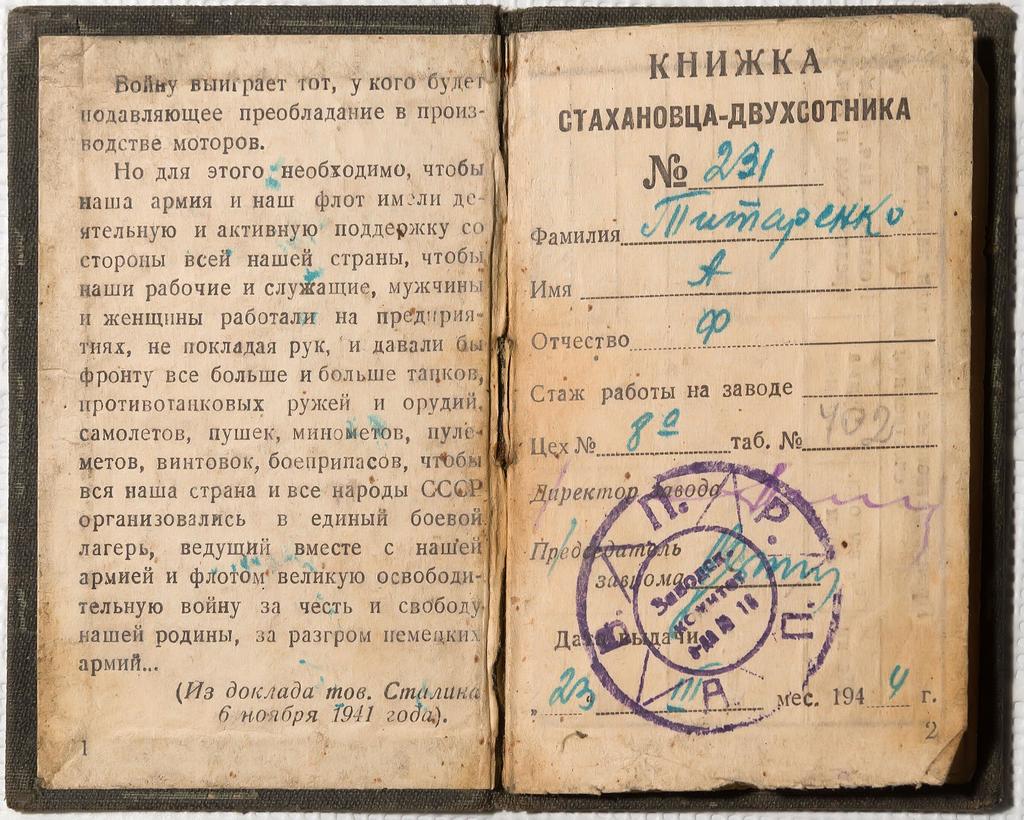 Войну выиграет тот, у кого будет
подавляющее преобладание в произ-
водстве моторов.
Но для этого необходимо, чтобы
наша армия и наш флот имели де-
ятельную и активную поддержку со
стороны всей нашей страны, чтобы
наши рабочие и служащие, мужчины
и женщины работали на предприя-
тиях, не покладая рук, и давали бы
фронту все больше и больше танков,
противотанковых ружей и орудий,
самолетов, пушек, минометов, пуле-
метов, винтовок, боеприпасов, чтобы
вся наша страна и все народы СССР
организовались в единый боевой
лагерь, ведущий вместе с нашей
армией и флотом великую освободи-
тельную войну за честь и свободу
нашей родины, за разгром немецких
армий...
(Из доклада тов. Сталина
6 ноября 1941 года).
1
КНИЖКА
СТАХАНОВЦА-ДВУХСОТНИКА
№ 231
Фамилия Титаренко
Имя А
Отчество Ф
Стаж работы на заводе
Цех № 8а таб. № 402
Директор завода
Председатель
завкома
В. П. Р. П. А
Заводск.
комитет
№ 16
Дата выдачи
„ 23 III мес. 194 4 г.
2